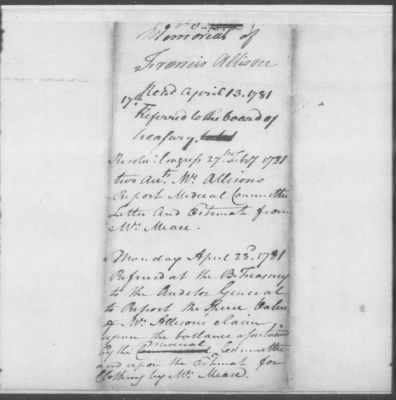 Memorial of
Francis Allison
Read April 13. 1781
17th
Referred to the board of
treasury.
Resolv: Congress 27th Feb'y 1781
two Acct. Mr. Allisons
Report Medical Committee
Letter and Estimate from
Mr. Mease.
Monday April 23d. 1781
Referred at the B. Treasury
to the Auditor General
to Report the Specie Value
of Mr. Allisons Claim
upon the ballance ascertained
by the Medical Committee
and upon the Estimate for
Clothing by Mr. Mease.